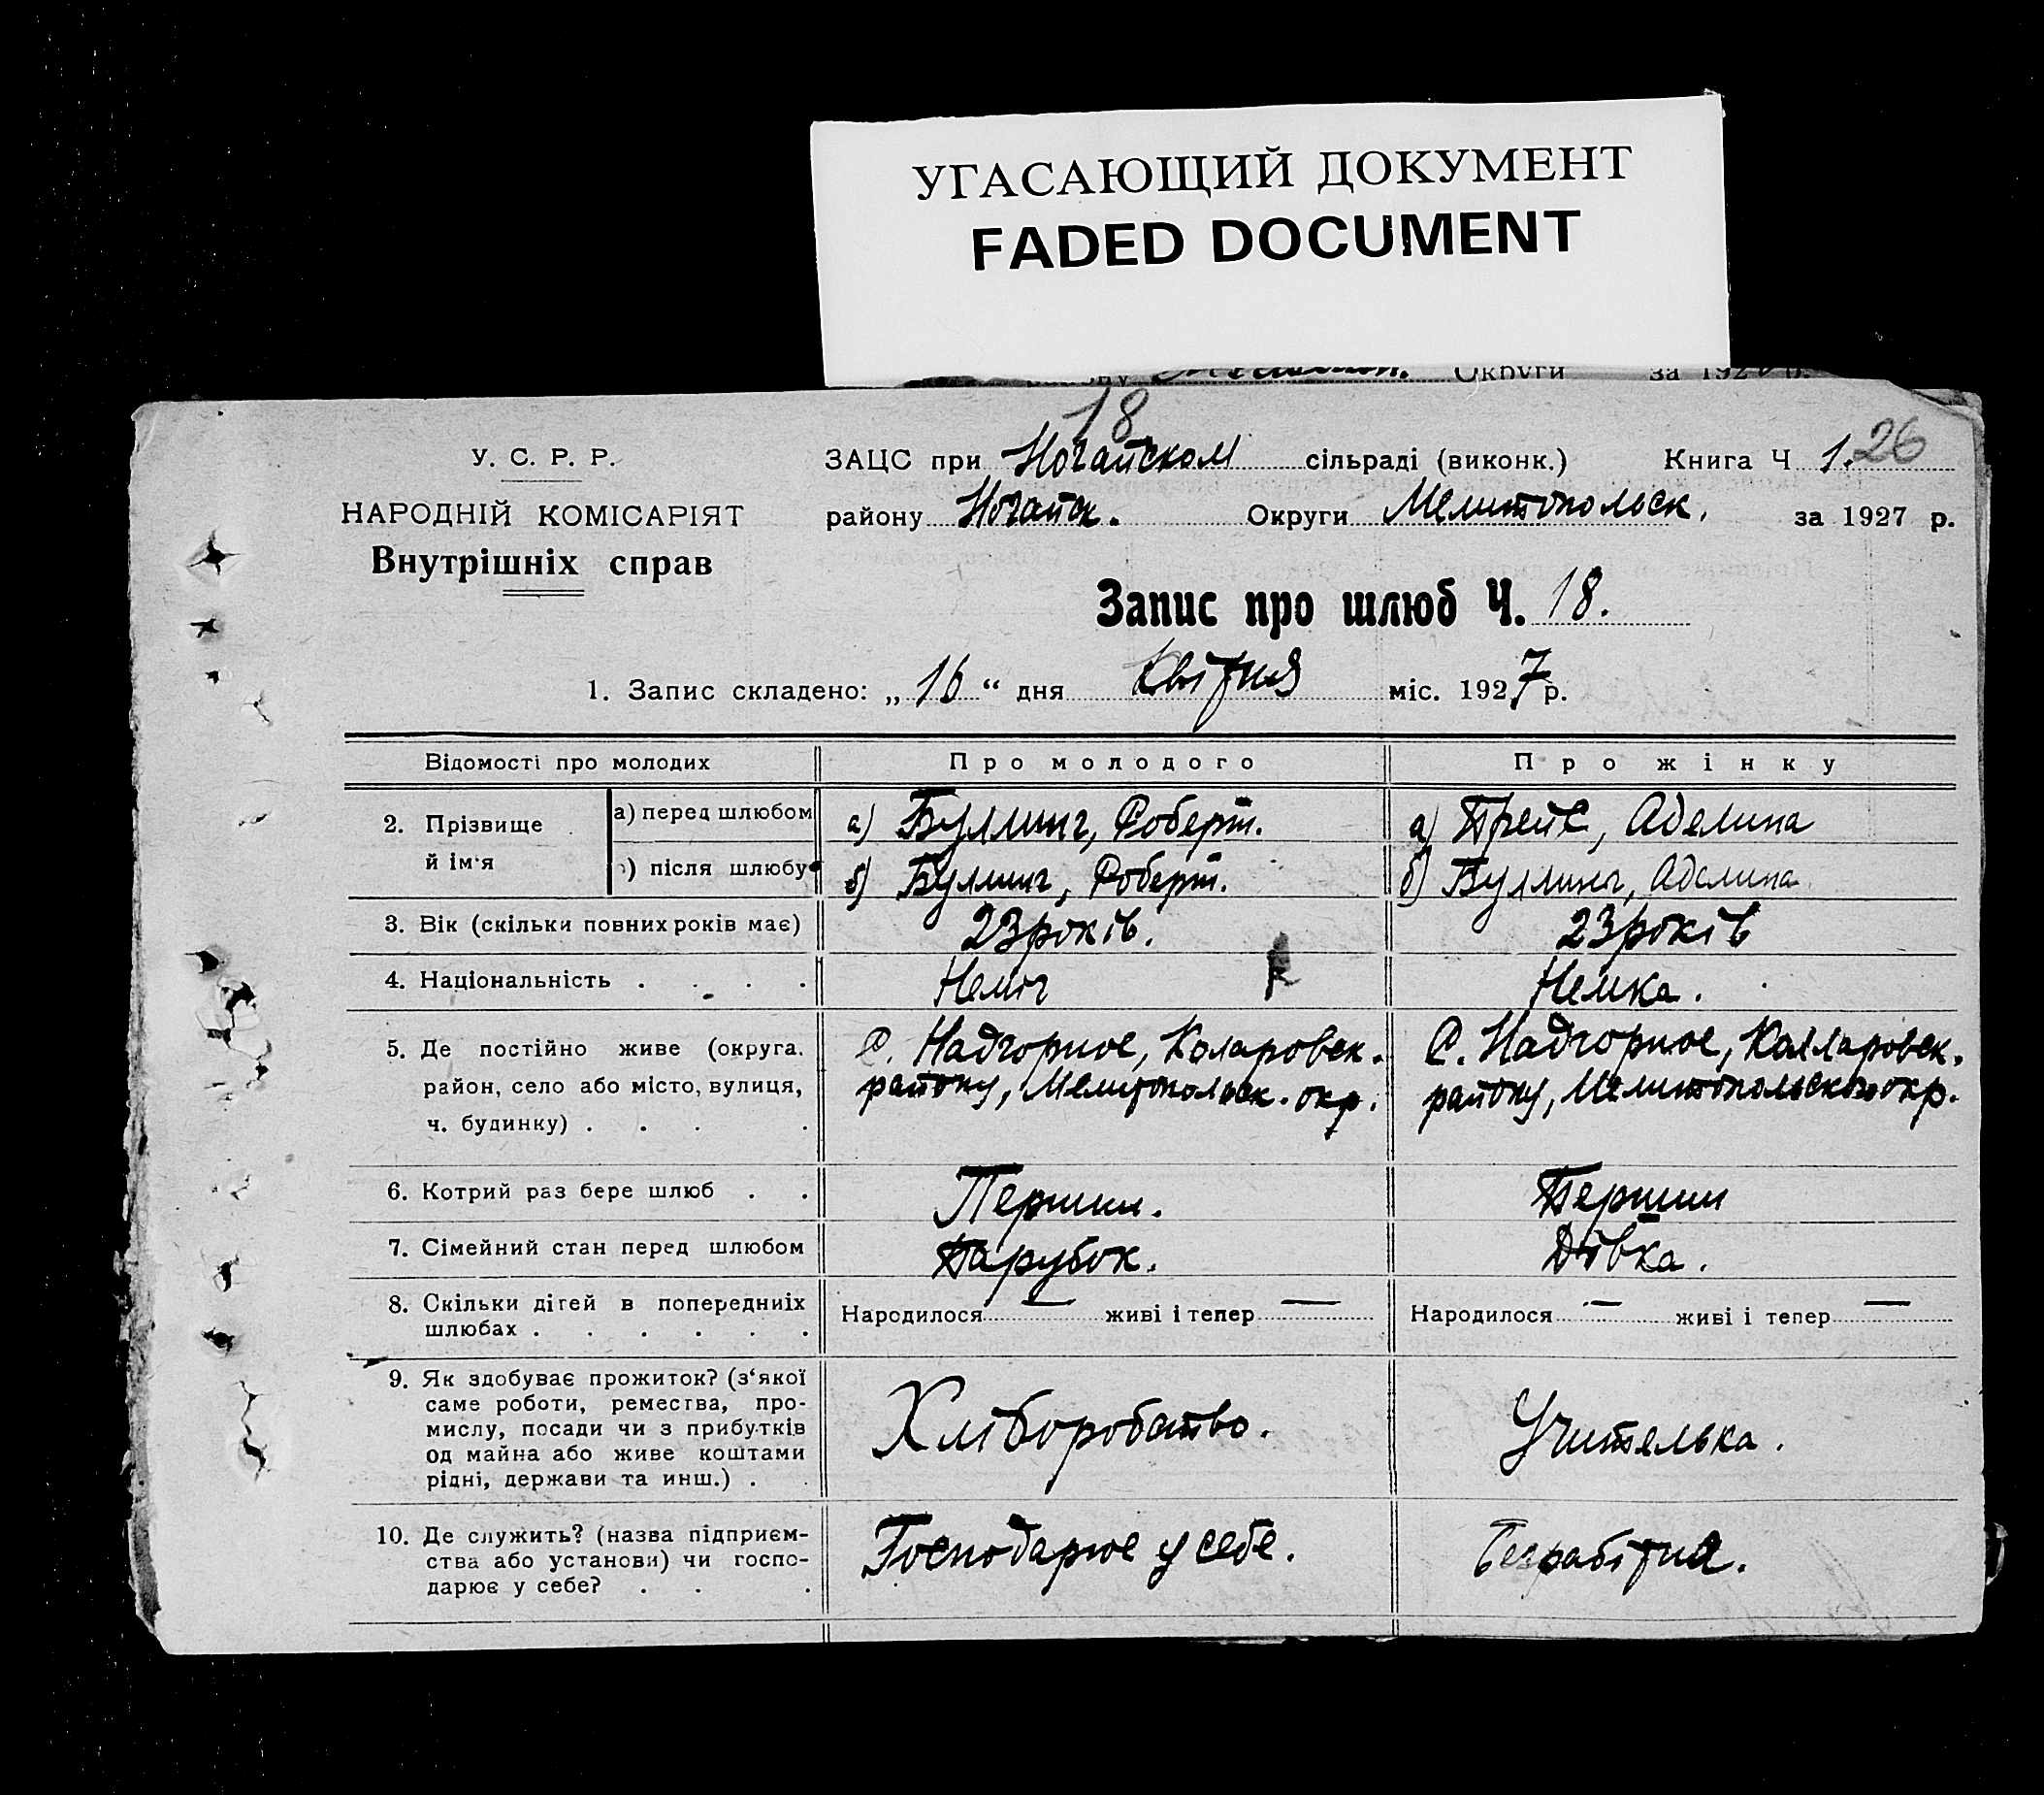 УГАСАЮЩИЙ ДОКУМЕНТ
FADED DOCUMENT
Округи за 192
18
У. С. Р. Р.
НАРОДНІЙ КОМІСАРІЯТ
Внутрішніх справ
ЗАЦС при Ногайском сільраді (виконк.) Книга Ч 1. 26
району Ногайск. Округи Мелитопольск. за 1927 р.
Запис про шлюб Ч. 18.
1. Запис складено: „16“ дня Квітня міс. 1927 р.
Відомості про молодих Про молодого Про жінку
2. Прізвище й ім‘я
а) перед шлюбом а) Буллинг, Роберт. а) Прейс, Аделина
) після шлюбу б) Буллинг, Роберт. б) Буллинг, Аделина
3. Вік (скільки повних років має) 23 років. 23 років
4. Національність . . . . Неміг Немка.
5. Де постійно живе (округа. район, село або місто, вулиця, ч. будинку) . . . .
С. Надгорное, Коларовск.
району, Мелитопольск. окр.
С. Надгорное, Колларовск.
району, Мелитопольской окр.
6. Котрий раз бере шлюб . . Перший. Перший
7. Сімейний стан перед шлюбом Парубок. Дівка.
8. Скільки дітей в попередніх шлюбах . . . . . . Народилося — живі і тепер — Народилося — живі і тепер —
9. Як здобуває прожиток? (з‘якої
саме роботи, ремества, про-
мислу, посади чи з прибутків
од майна або живе коштами
рідні, держави та инш.) .
Хліборобство. Учителька.
10. Де служить? (назва підприєм-
ства або установи) чи госпо-
дарює у себе? . . .
Господарює у себе. Безрабітна.